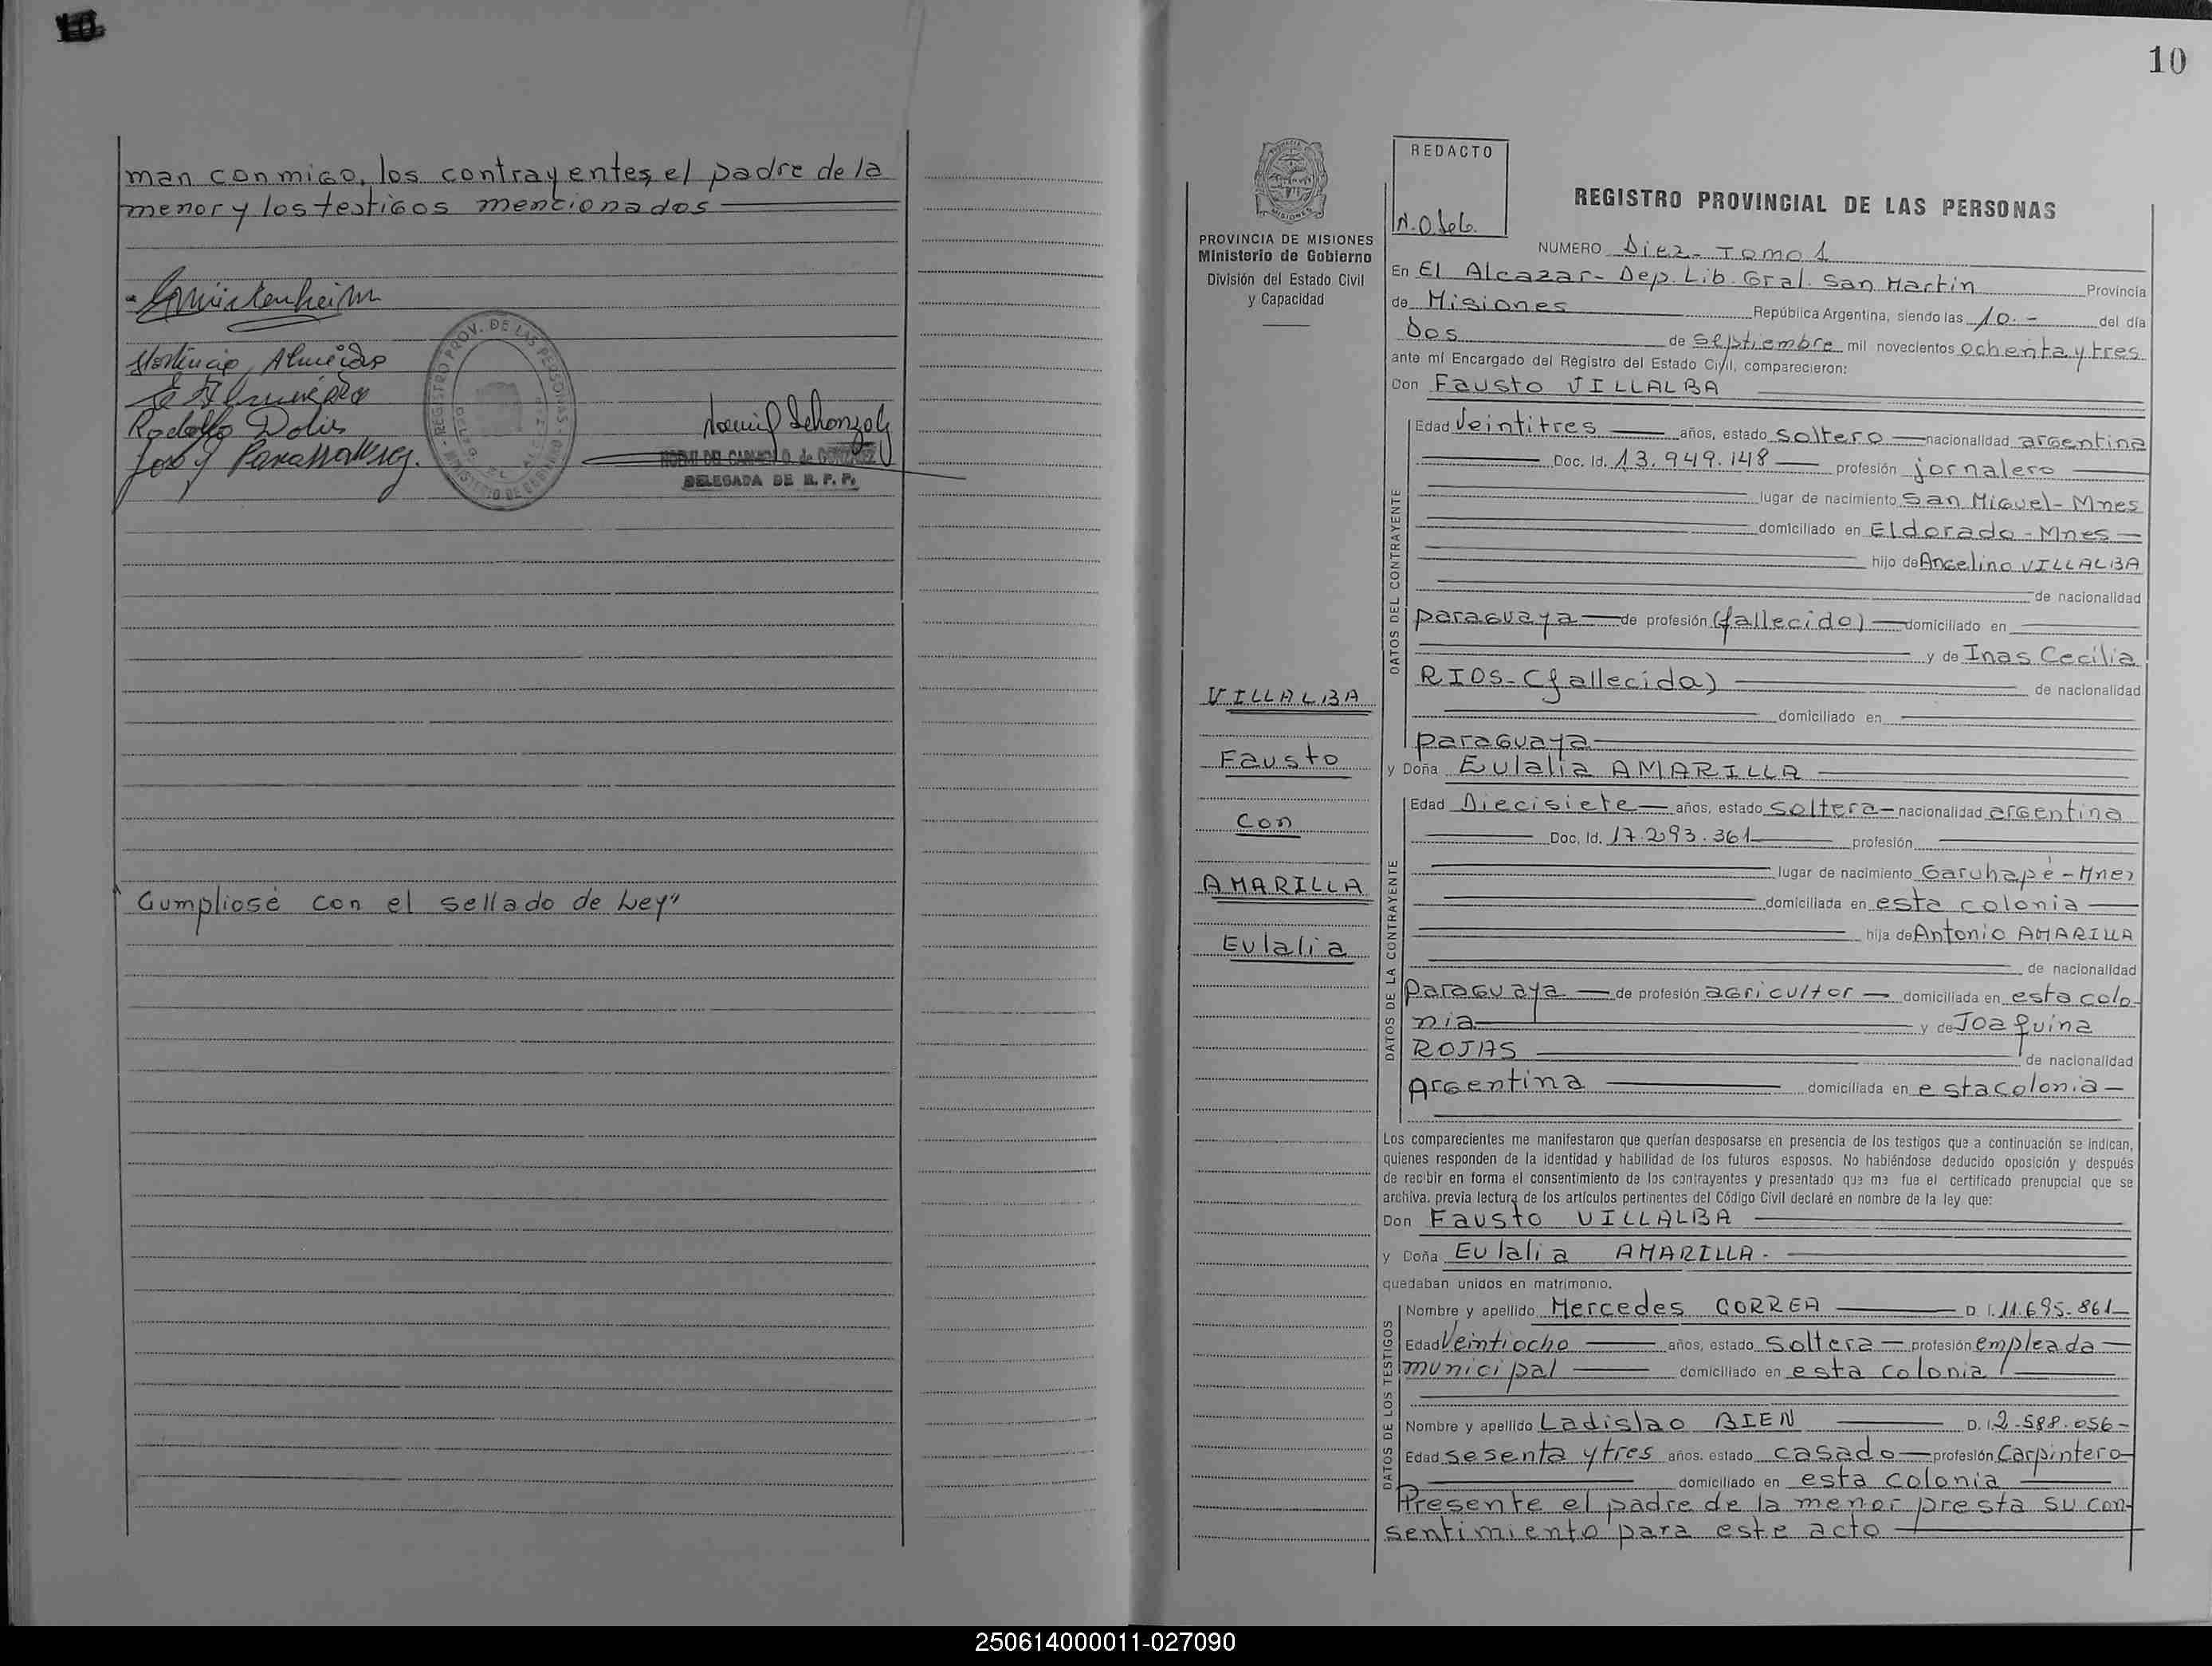 man conmigo, los contrayentes, el padre de la
menor y los testigos mencionados
Hortincio Almeida
Rodolfo Dolis
NOEMI DEL CARMEN O. de GONZALEZ
DELEGADA DE R. P. P.
REGISTRO PROV. DE LAS PERSONAS
MINISTERIO DE GOBIERNO
"Cumpliosé con el sellado de Ley"
10
PROVINCIA DE MISIONES
Ministerio de Gobierno
División del Estado Civil
y Capacidad
VILLALBA
Fausto
Con
AMARILLA
Eulalia
REDACTO
REGISTRO PROVINCIAL DE LAS PERSONAS
NUMERO Diez - Tomo 1
En El Alcazar - Dep. Lib. Gral. San Martin Provincia
de Misiones República Argentina, siendo las 10.- del día
Dos de Septiembre mil novecientos ochenta y tres
ante mí Encargado del Registro del Estado Civil, comparecieron:
Don Fausto VILLALBA
DATOS DEL CONTRAYENTE
Edad Veintitres años, estado soltero nacionalidad argentina
Doc. Id. 13.949.148 profesión jornalero
lugar de nacimiento San Miguel - Mnes
domiciliado en Eldorado - Mnes
hijo de Angelino VILLALBA
de nacionalidad
paraguaya de profesión (fallecido) domiciliado en
y de Inas Cecilia
RIOS - (fallecida) de nacionalidad
domiciliado en
paraguaya
y Doña Eulalia AMARILLA
DATOS DE LA CONTRAYENTE
Edad Diecisiete años, estado soltera nacionalidad argentina
Doc. Id. 17.293.361 profesión
lugar de nacimiento Garuhapé - Mnes
domiciliada en esta colonia
hija de Antonio AMARILLA
de nacionalidad
Paraguaya de profesión agricultor domiciliada en esta colo-
nia y de Joaquina
ROJAS de nacionalidad
Argentina domiciliada en esta colonia
Los comparecientes me manifestaron que querían desposarse en presencia de los testigos que a continuación se indican,
quienes responden de la identidad y habilidad de los futuros esposos. No habiéndose deducido oposición y después
de recibir en forma el consentimiento de los contrayentes y presentado que me fue el certificado prenupcial que se
archiva, previa lectura de los artículos pertinentes del Código Civil declaré en nombre de la ley que:
Don Fausto VILLALBA
y Doña Eulalia AMARILLA.
quedaban unidos en matrimonio.
DATOS DE LOS TESTIGOS
Nombre y apellido Mercedes CORREA D. I. 11.695.861
Edad Veintiocho años, estado soltera profesión empleada
municipal domiciliado en esta colonia
Nombre y apellido Ladislao BIEN D. I. 2.588.056
Edad sesenta y tres años, estado casado profesión Carpintero
domiciliado en esta colonia
Presente el padre de la menor presta su con-
sentimiento para este acto
250614000011-027090